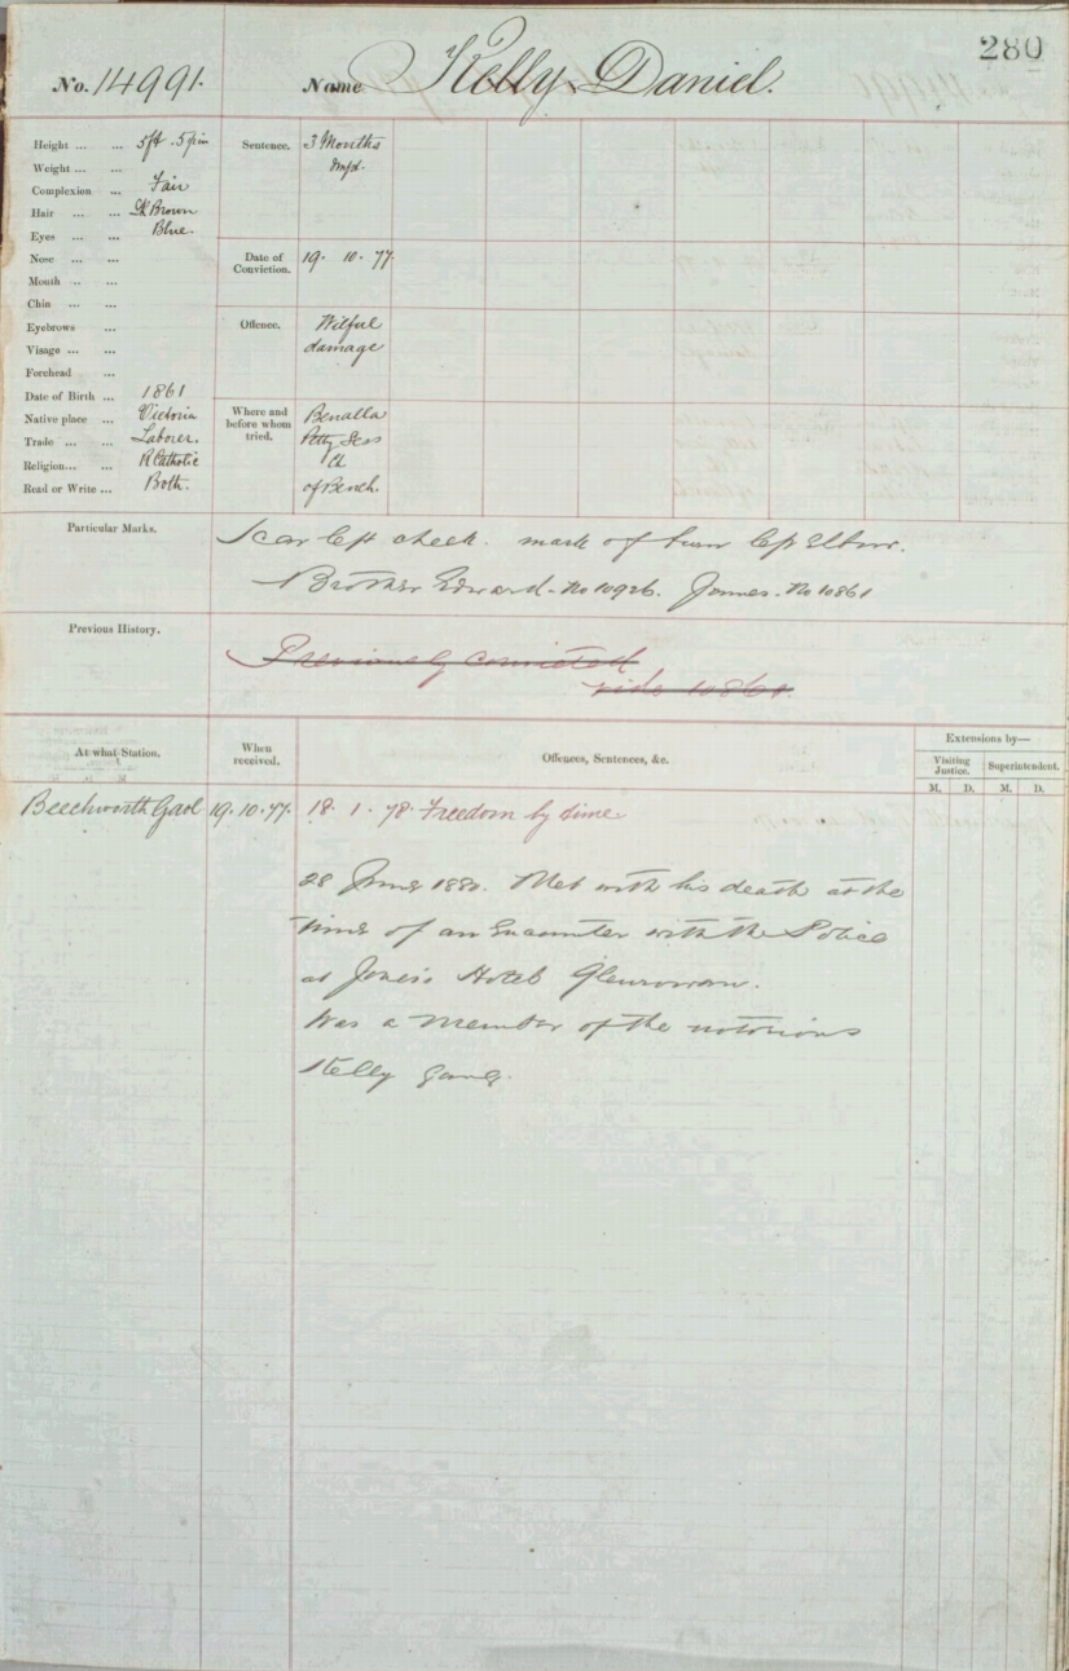 280
No. 14991. Name Kelly Daniel.
Height ... ... 5ft . 5in
Weight ... ...
Complexion ... Fair
Hair ... ... Dk Brown
Eyes ... ... Blue.
Nose ... ...
Mouth ... ...
Chin ... ...
Eyebrows ...
Visage ... ...
Forehead ...
Date of Birth ... 1861
Native place ... Victoria
Trade ... ... Laborer.
Religion... ... R Catholic
Read or Write ... Both.
Sentence. 3 Months
Impt.
Date of
Conviction. 19. 10. 77.
Offence. Wilful
damage
Where and
before whom
tried.
Benalla
Petty Sess
Ch
of Bench.
Particular Marks.
Scar left cheek. mark of burn left Elbow.
Brother Edward - No 10926. James - No 10861
Previous History.
Previously convicted
vide 10861.
At what Station. When
received. Offences, Sentences, &c. Extensions by—
Visiting
Justice. Superintendent.
M. D. M. D.
Beechworth Gaol 19.10.77. 18. 1. 78. Freedom by time
28 June 1880. Met with his death at the
time of an Encounter with the Police
at Jones's Hotel Glenrowan.
Was a member of the notorious
Kelly Gang.